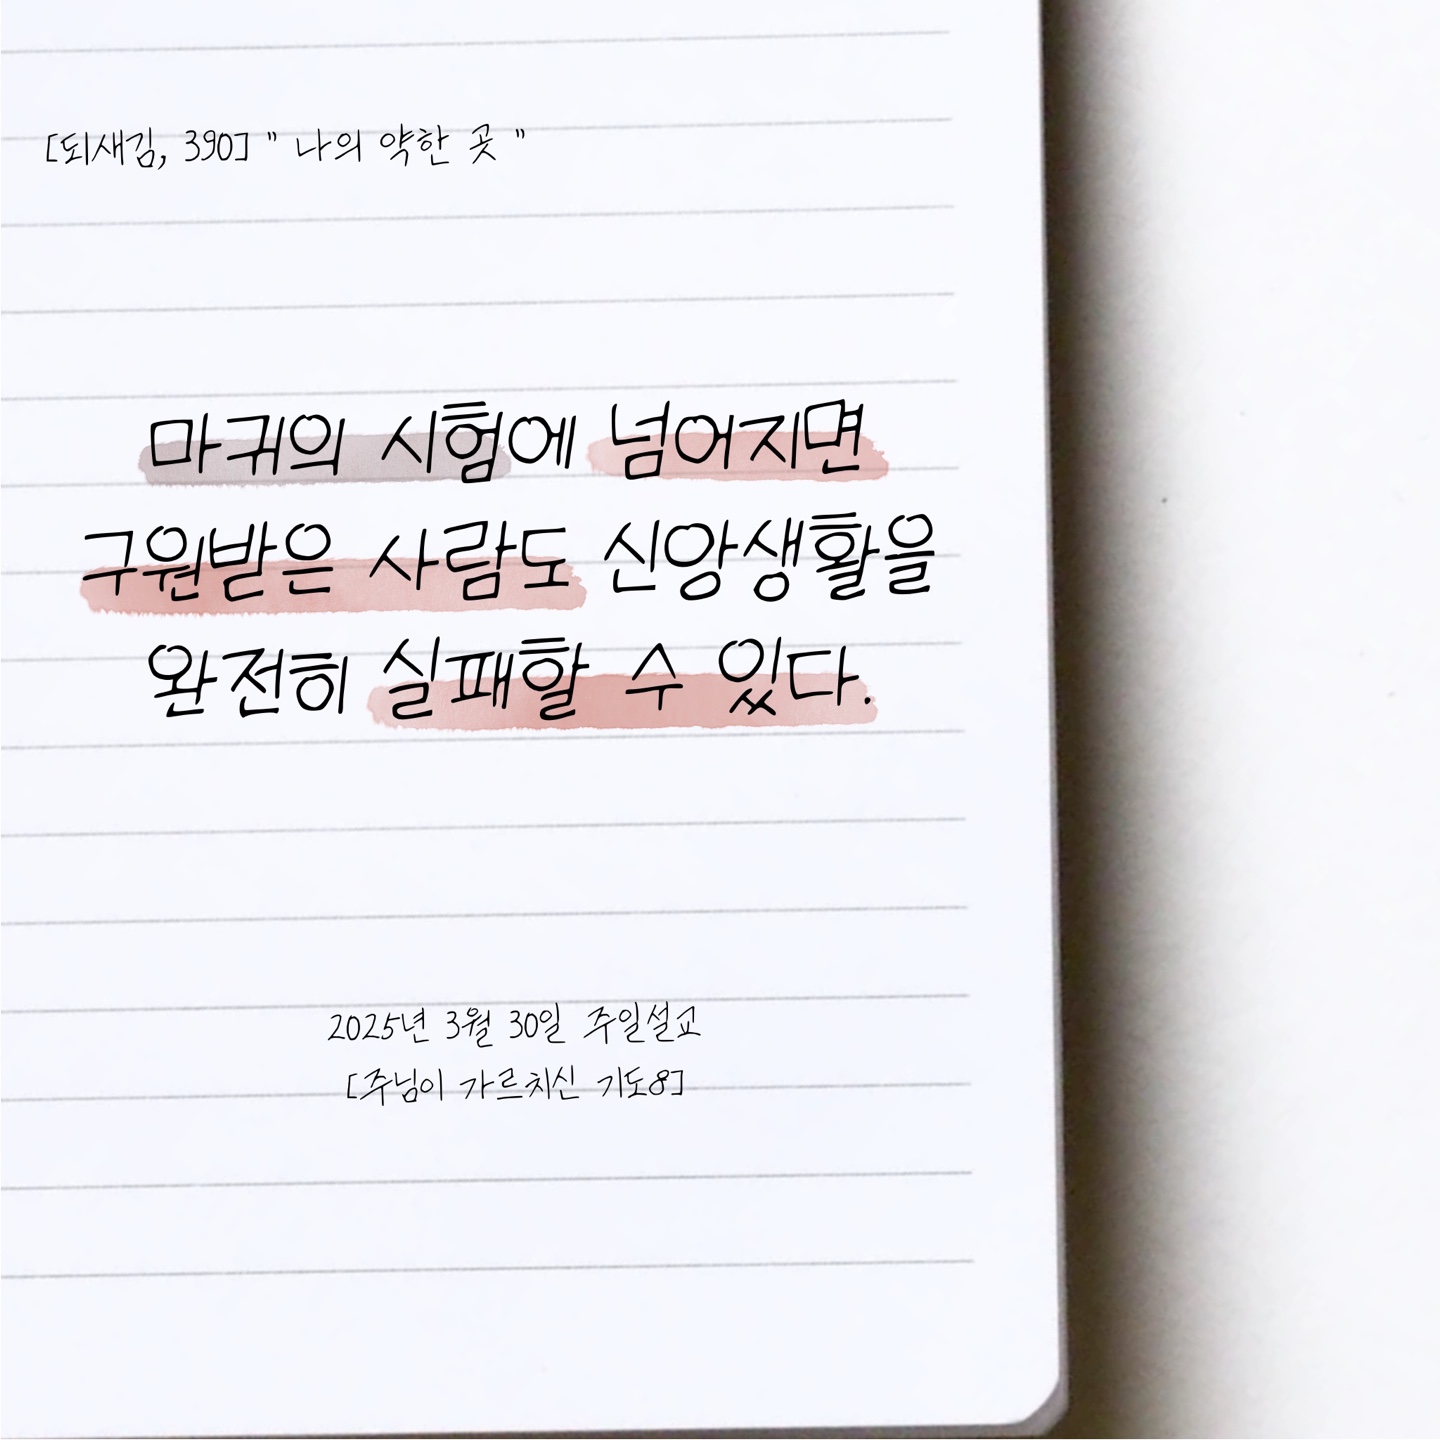 [되새김, 390] " 나의 약한 곳 "
마귀의 시험에 넘어지면
구원받은 사람도 신앙생활을
완전히 실패할 수 있다.
2025년 3월 30일 주일설교
[주님이 가르치신 기도8]